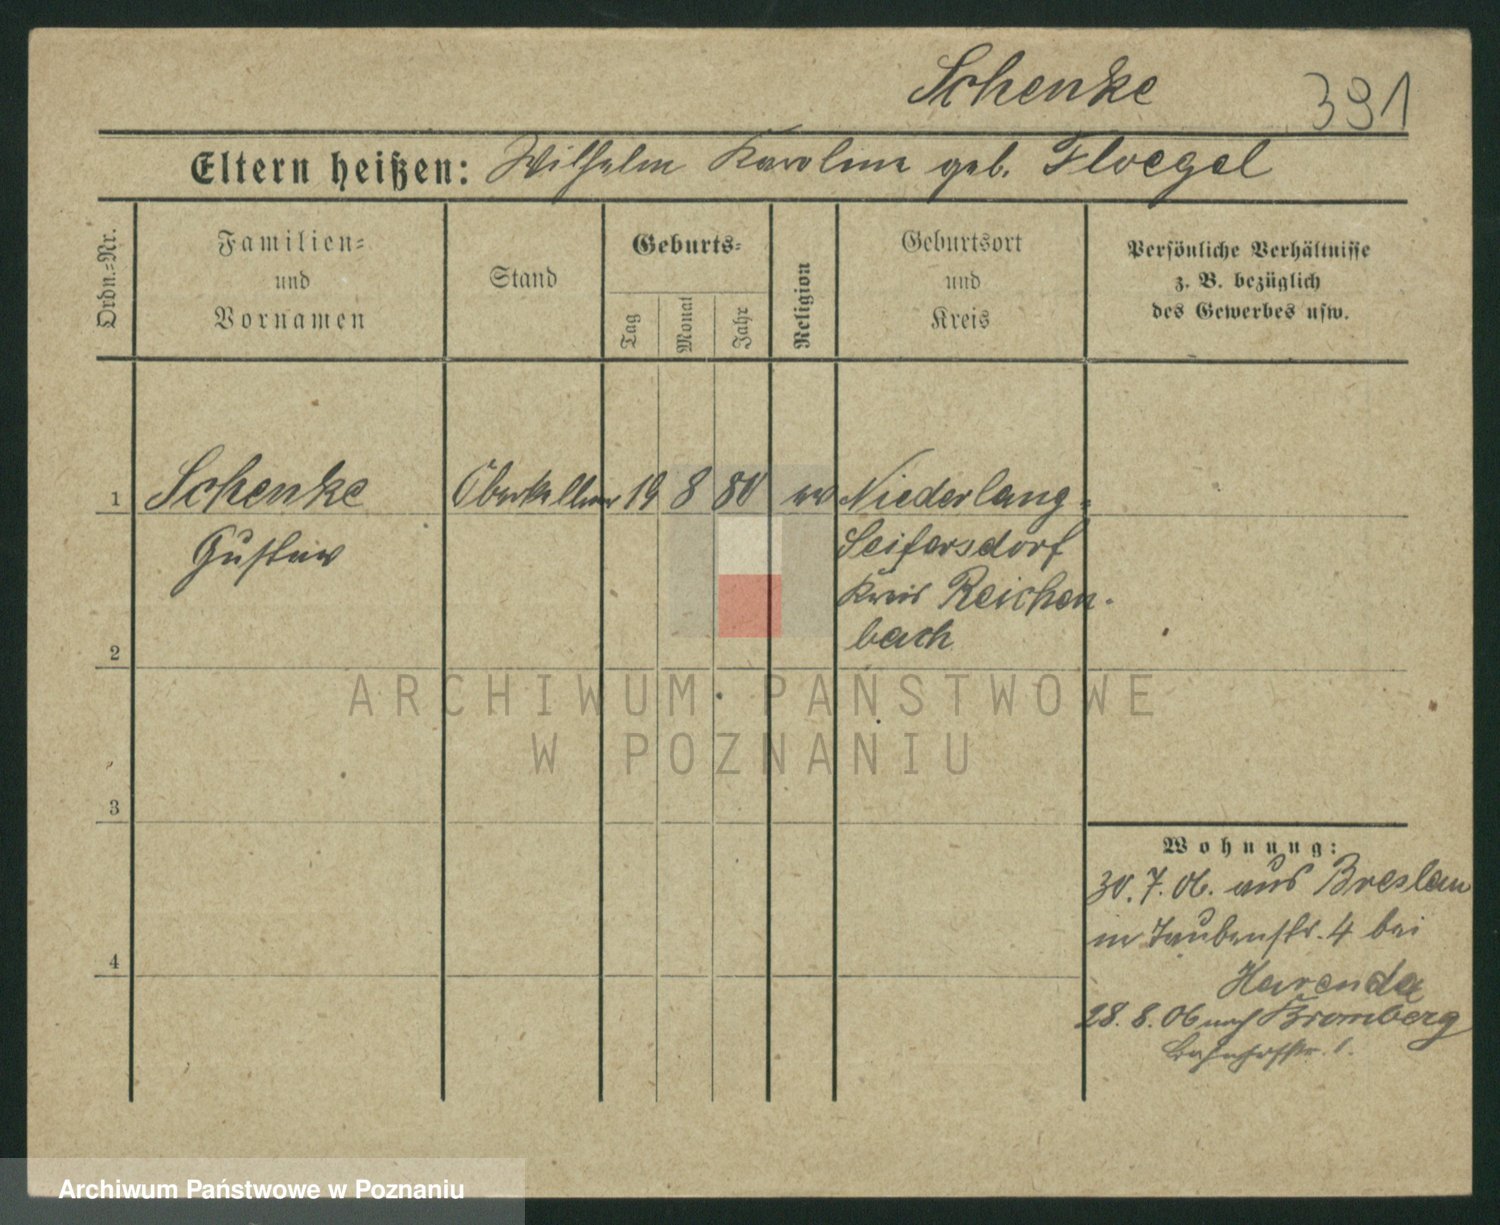 Schenke 391
Eltern heißen: Wilhelm Karoline geb. Floegel
Ordn.=Nr.
Familien=
und
Vornamen
Stand
Geburts=
Tag
Monat
Jahr
Religion
Geburtsort
und
Kreis
Persönliche Verhältnisse
z. B. bezüglich
des Gewerbes usw.
1 Schenke Oberkellner 19 8 80 ev Niederlang=
Gustav Seifersdorf
Kreis Reichen-
bach
2
ARCHIWUM PAŃSTWOWE
W POZNANIU
3
Wohnung:
30. 7. 06. aus Breslau
Taubenstr. 4 bei
Harenda
4
28. 8. 06 nach Bromberg
Bahnhofstr. 1.
Archiwum Państwowe w Poznaniu